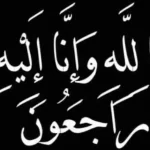 لله وَإِنَّا إِلَيْهِ
رَاجَعُونَ